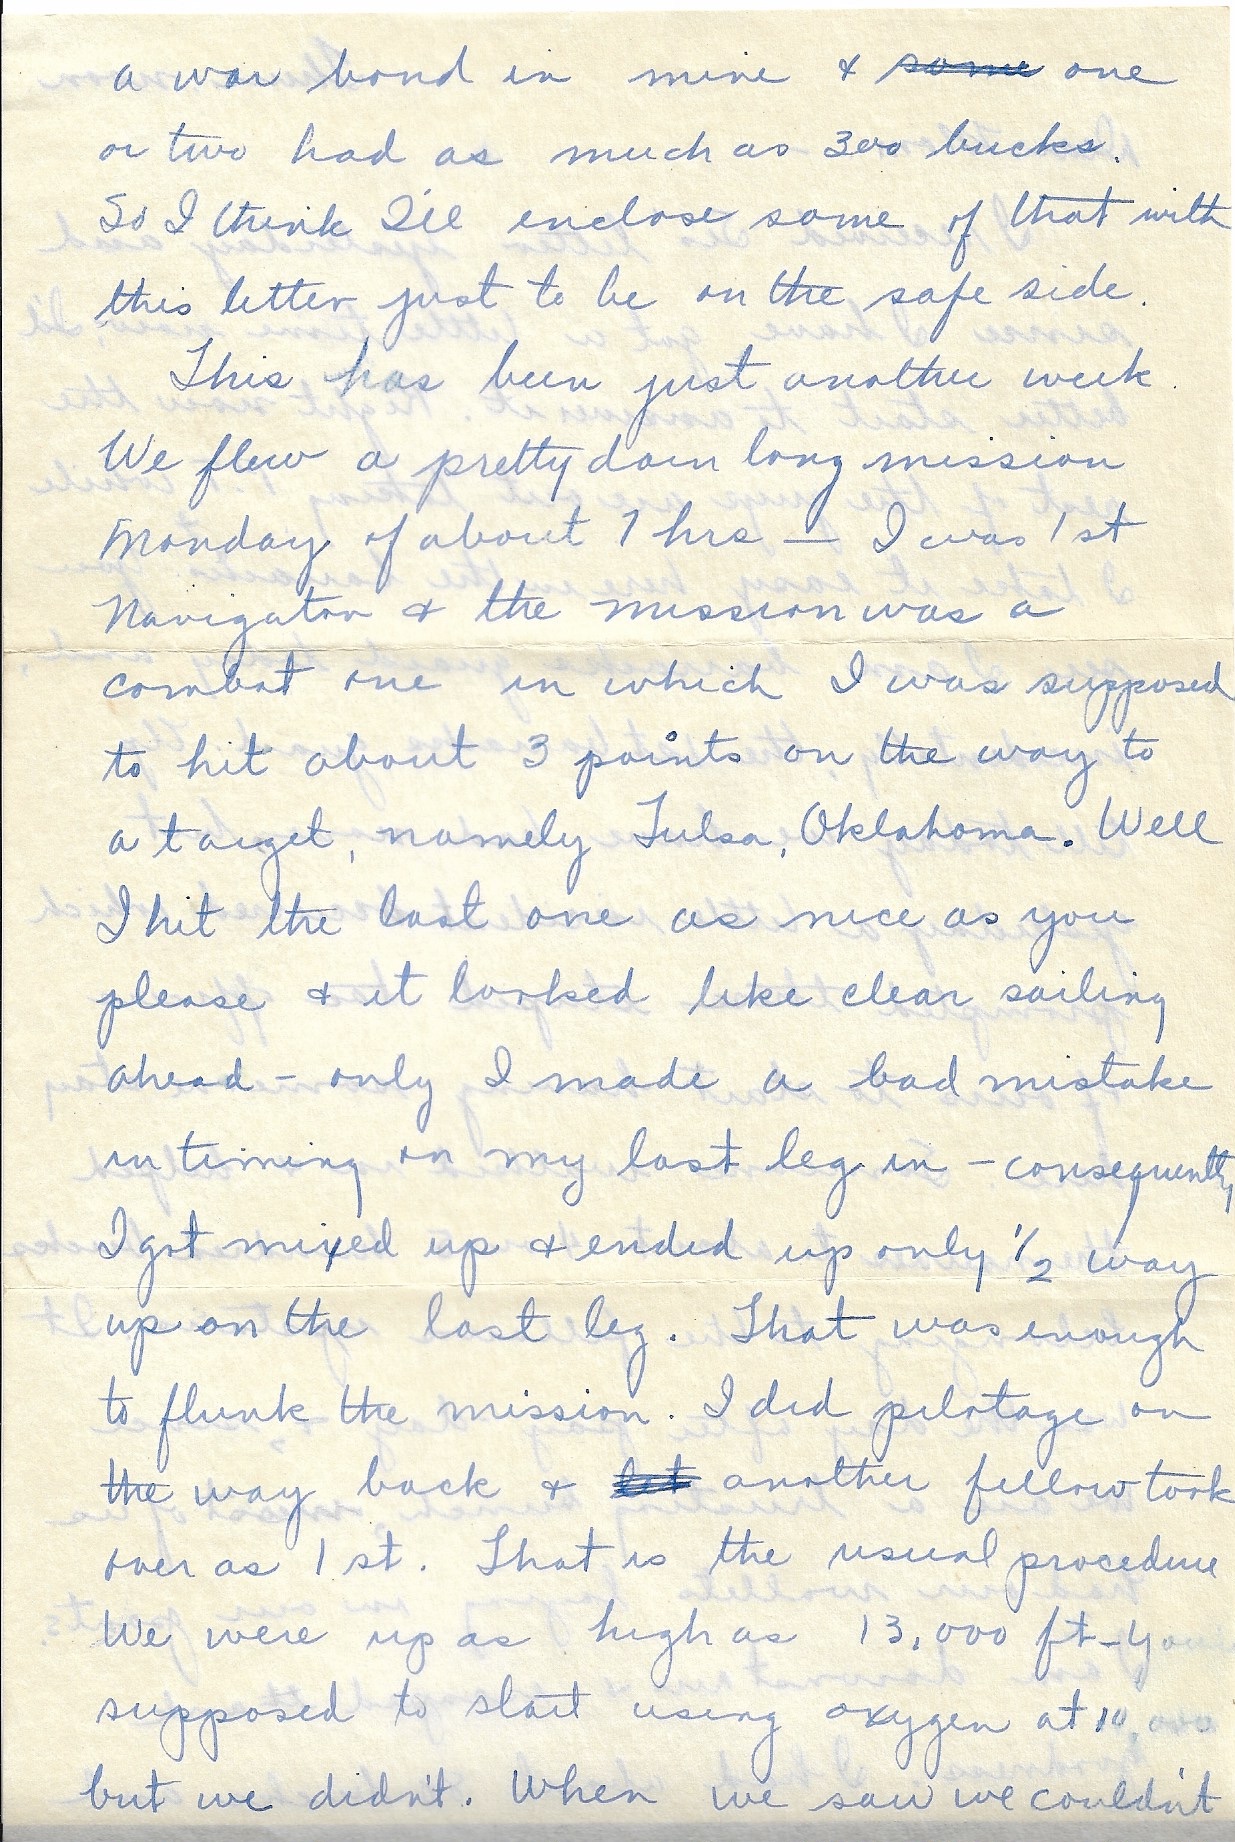 a war bond in mine & some one
or two had as much as 300 bucks.
So I think I'll enclose some of that with
this letter just to be on the safe side.
This has been just another week.
We flew a pretty darn long mission
Monday of about 7 hrs — I was 1st
Navigator & the mission was a
combat one in which I was supposed
to hit about 3 points on the way to
a target, namely Tulsa, Oklahoma. Well
I hit the last one as nice as you
please & it looked like clear sailing
ahead - only I made a bad mistake
in timing on my last leg in - consequently
I got mixed up & ended up only 1/2 way
up on the last leg. That was enough
to flunk the mission. I did pilotage on
the way back & let another fellow took
over as 1st. That is the usual procedure
We were up as high as 13,000 ft - you
supposed to start using oxygen at 10,000
but we didn't. When we saw we couldn't